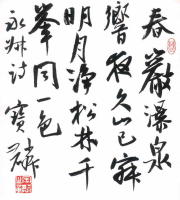 春巖瀑泉
響夜久山已寂
明月淨松林千
峯同一色
永琳詩 寶麟